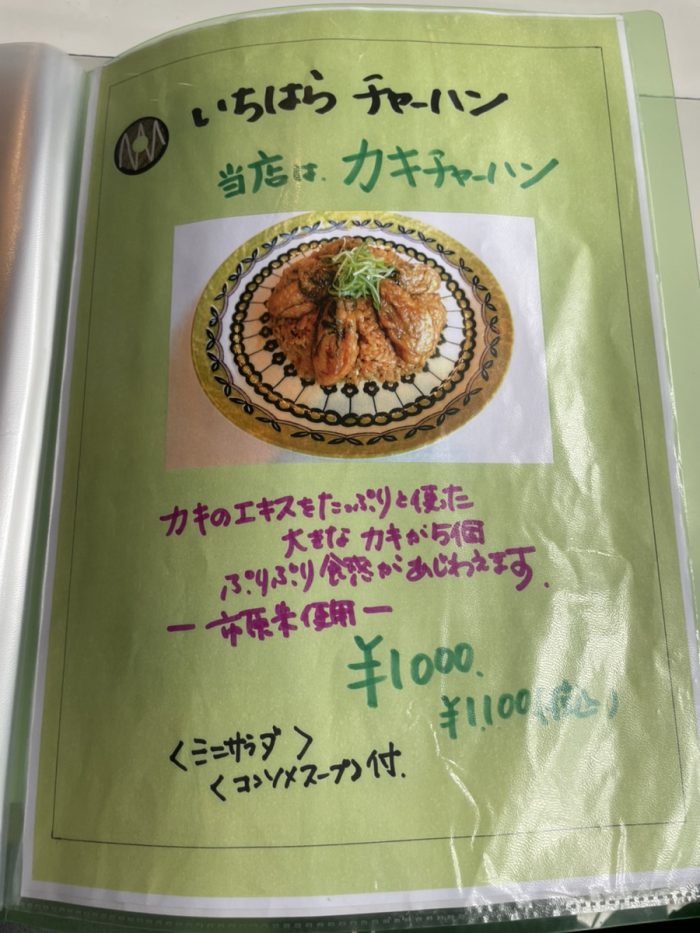 いちはら チャーハン
当店は、カキチャーハン
カキのエキスをたっぷりと使った
大きな カキが5個
ぷりぷり食感があじわえます.
ー 市原米使用 ー
¥1000.
¥1,100(税込)
〈ミニサラダ〉
〈コンソメスープ〉付.